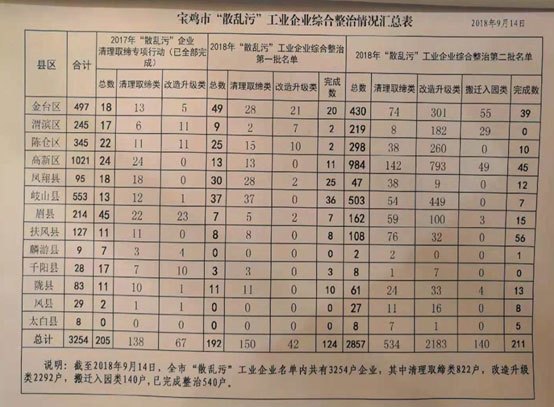 宝鸡市“散乱污”工业企业综合整治情况汇总表
2018年9月14日
县区 合计 2017年“散乱污”企业清理取缔专项行动（已全部完成） 2018年“散乱污”工业企业综合整治第一批名单 2018年“散乱污”工业企业综合整治第二批名单
总数 清理取缔类 改造升级类 总数 清理取缔类 改造升级类 完成数 总数 清理取缔类 改造升级类 搬迁入园类 完成数
金台区 497 18 13 5 49 28 21 20 430 74 301 55 39
渭滨区 245 17 6 11 9 2 7 2 219 8 182 29 0
陈仓区 345 22 11 11 25 15 10 2 298 38 260 0 10
高新区 1021 24 24 0 13 13 0 11 984 142 793 49 45
凤翔县 95 18 18 0 30 28 2 25 47 38 9 0 12
岐山县 553 13 12 1 37 37 0 36 503 54 449 0 7
眉县 214 45 22 23 7 5 2 7 162 59 100 3 15
扶风县 127 11 11 0 8 8 0 8 108 76 32 0 56
麟游县 9 7 3 4 0 0 0 0 2 2 0 0 1
千阳县 28 17 7 10 3 3 0 3 8 1 7 0 0
陇县 83 11 10 1 11 11 0 10 61 24 33 4 13
凤县 29 2 1 1 0 0 0 0 27 11 16 0 8
太白县 8 0 0 0 0 0 0 0 8 7 1 0 5
总计 3254 205 138 67 192 150 42 124 2857 534 2183 140 211
说明：截至2018年9月14日，全市“散乱污”工业企业名单内共有3254户企业，其中清理取缔类822户，改造升级
类2292户，搬迁入园类140户，已完成整治540户。